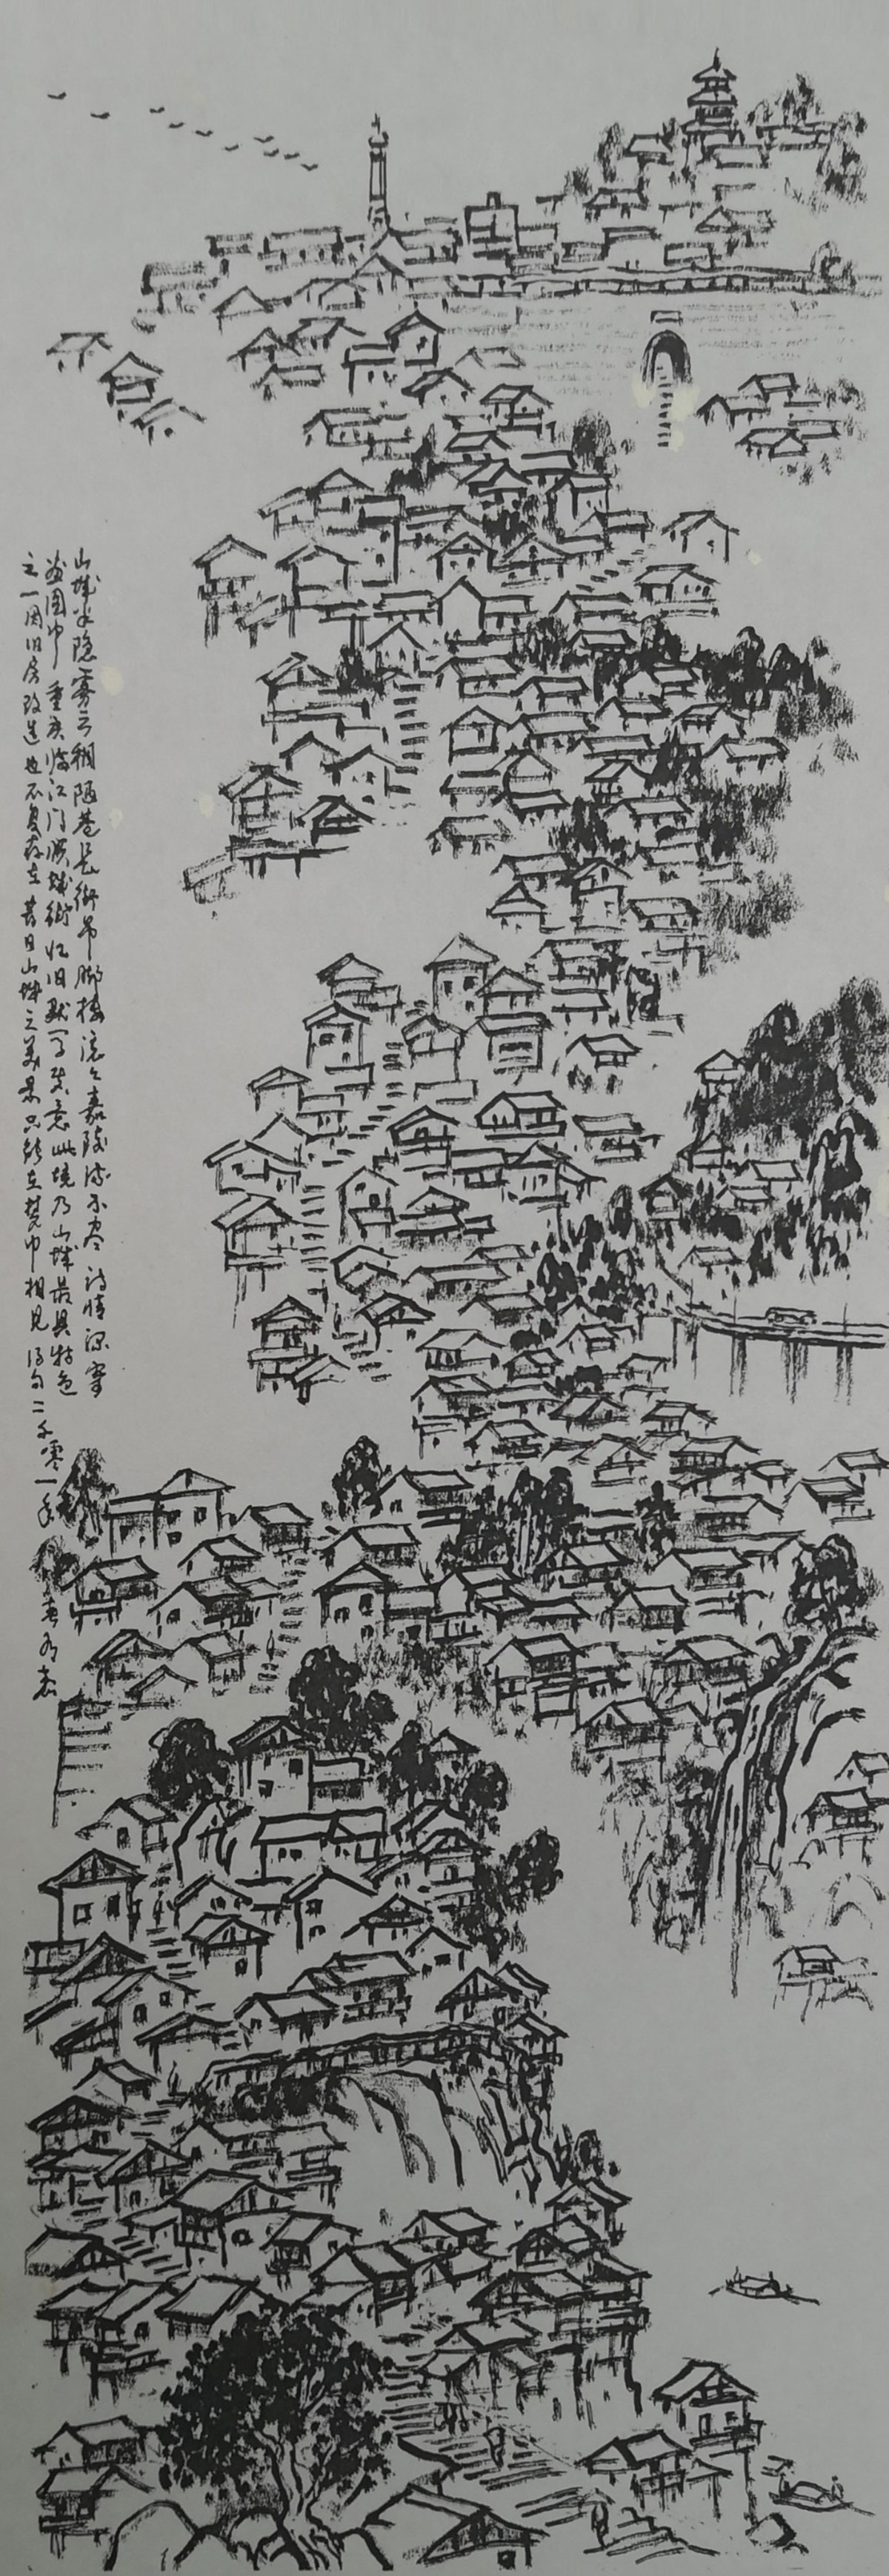 山城半隐雾云稠陋巷长街吊脚楼滚滚嘉陵流不尽诗情深寄
画图中重庆临江门顺城街忆旧默写其意此境乃山城最具特色
之一因旧房改造也不复存在昔日山城之美景只能在梦中相见得句二千零一年